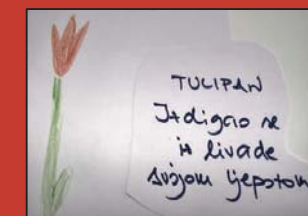 TULIPAN
Izdigao se
iz livade
svojom ljepotom